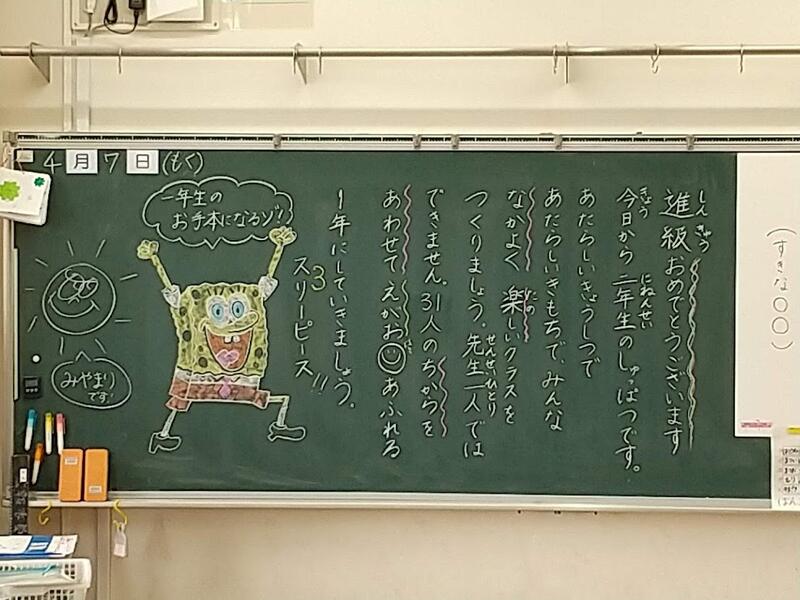 (すきな○○)
進級おめでとうございます
しんきゅう
今日から二年生のしゅっぱつです。
きょう
にねんせい
あたらしいきょうしつで
あたらしいきもちで、みんな
なかよく楽しいクラスを
たの
つくりましょう。先生一人では
せんせいひとり
できません。31人のちからを
あわせてえがお あふれる
1年にしていきましょう。
3
スリーピース!!
一年生の
お手本になるゾ!
4月7日(もく)
みやまり
です!